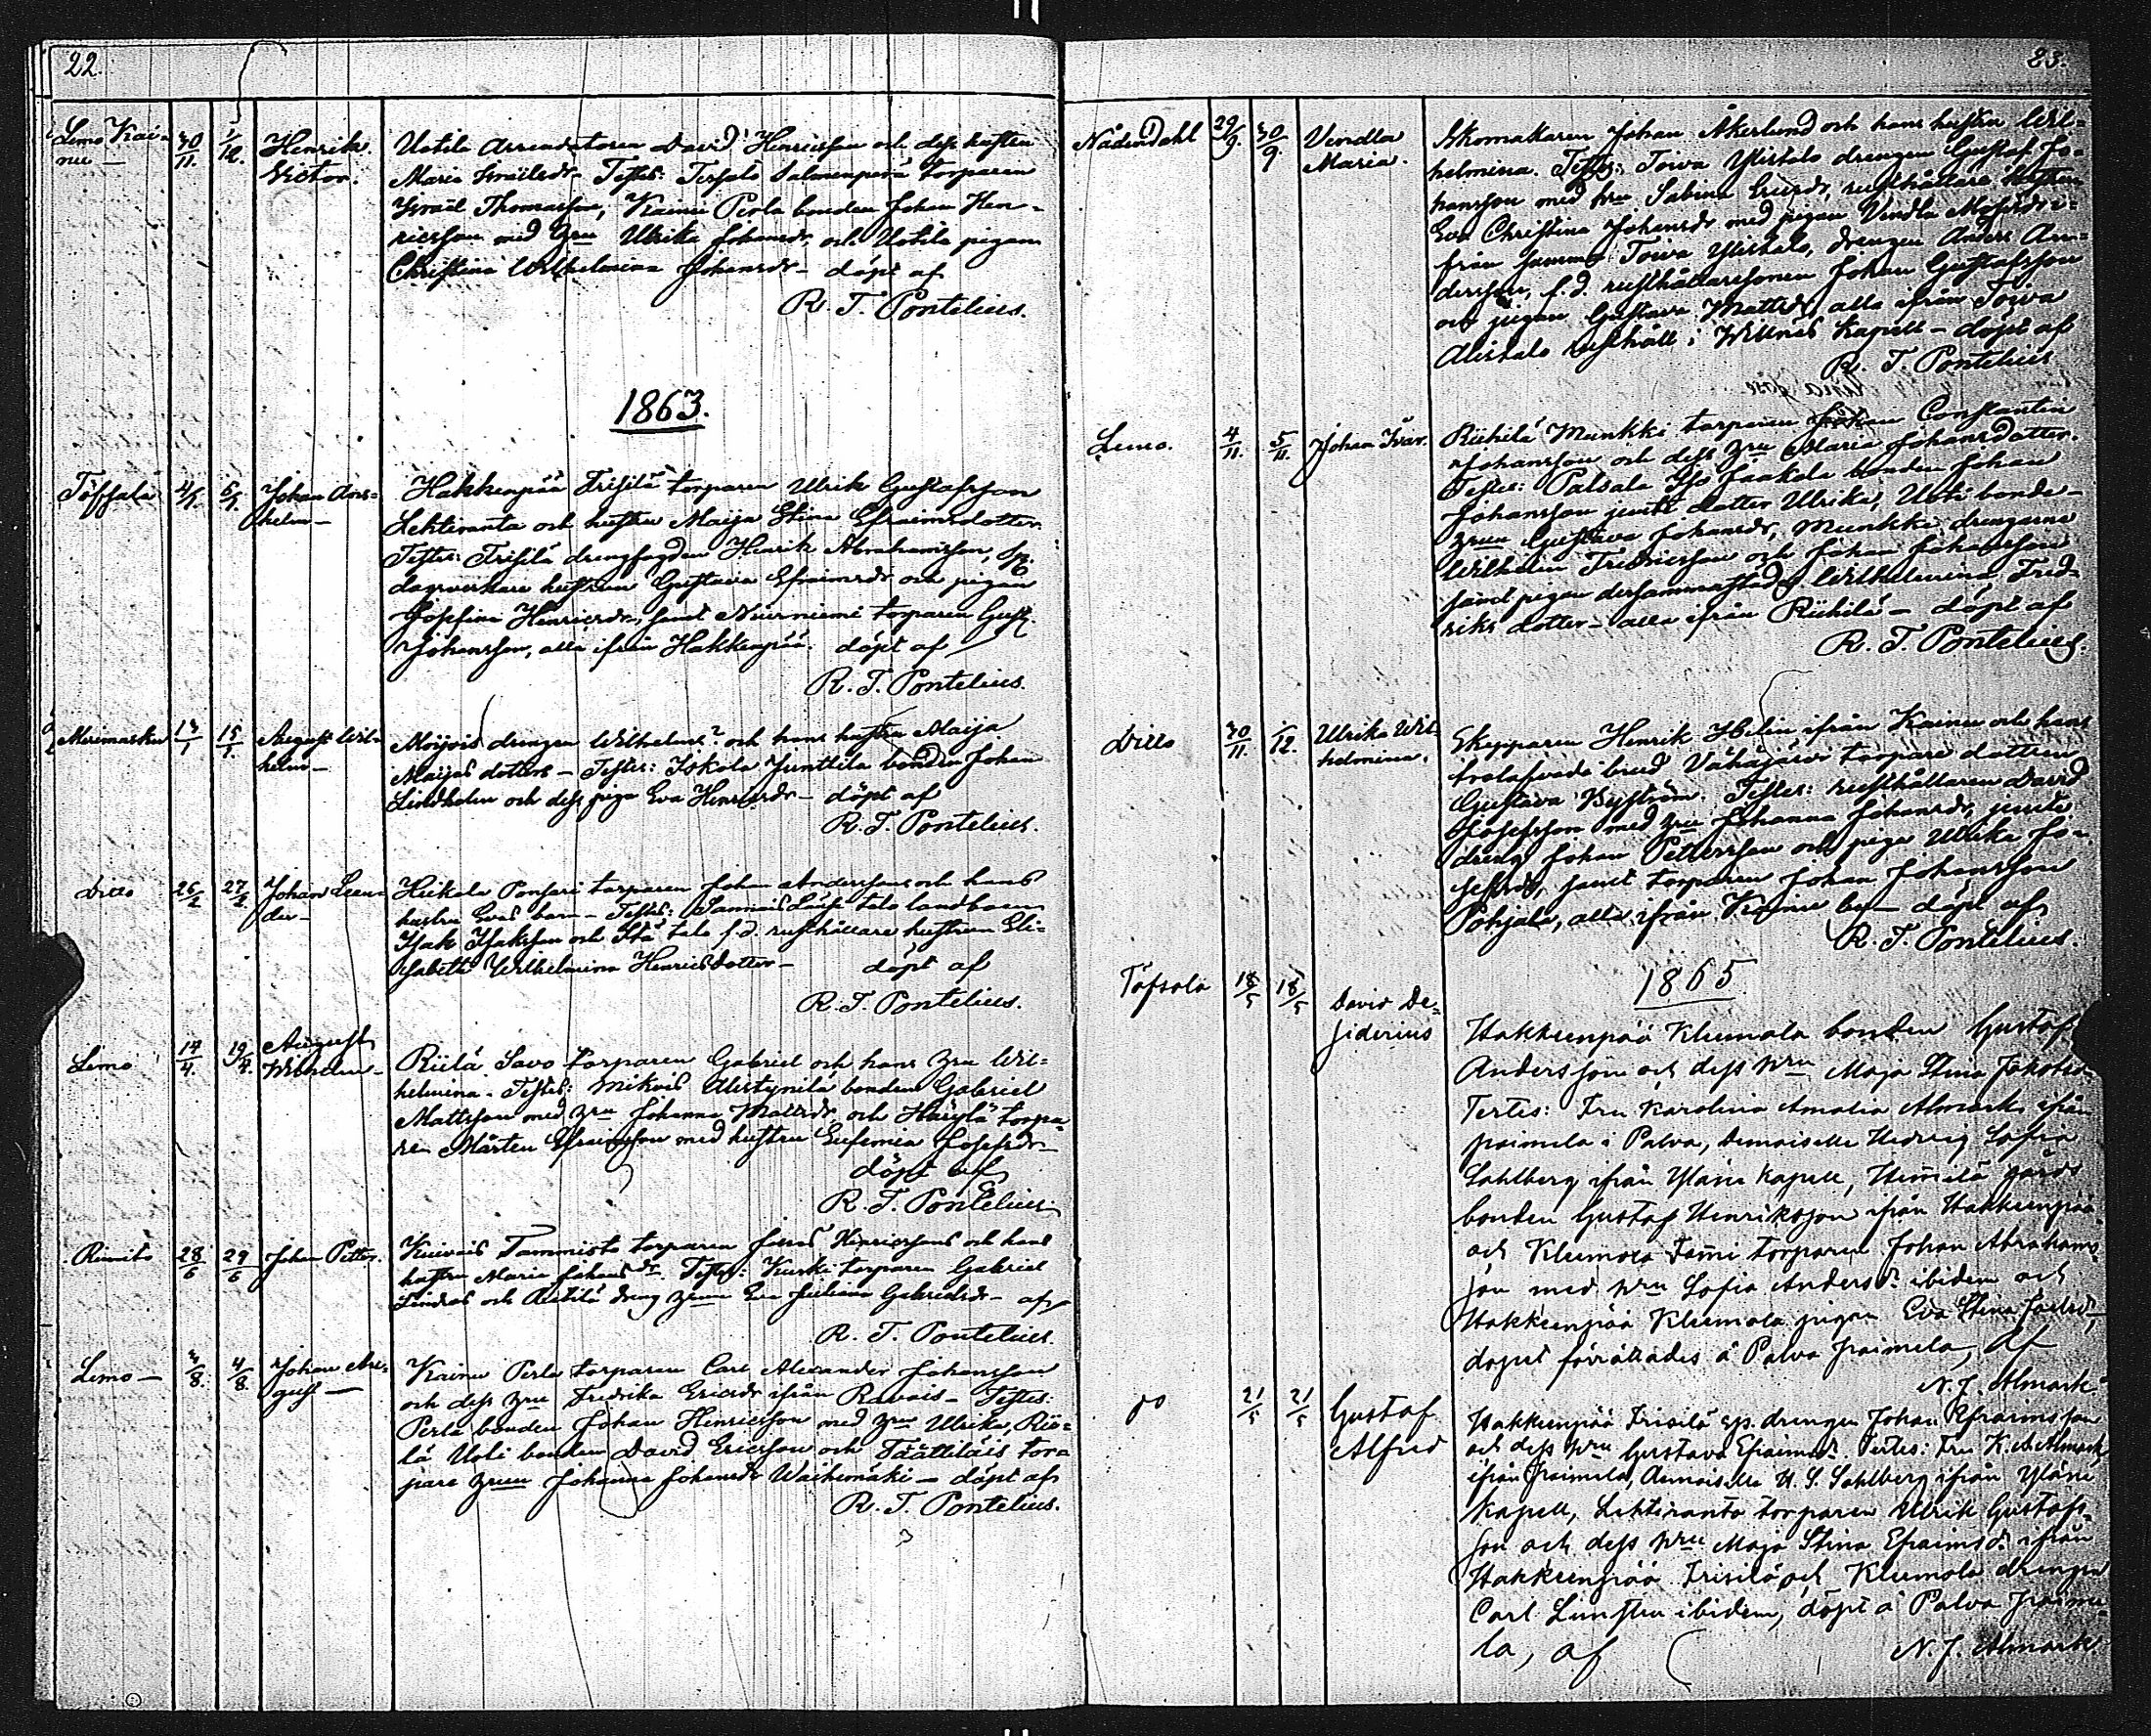 22.
Lemo Kai-
nu —
30/11.
1/12.
Henrik
Victor.
Uotila Arrendatoren David Henricsson och dess hustru
Maria Israelsdr – Testes: Tersalo Salonenperä torparen
Israel Thomasson, Kainu Perla bonden Johan Hen-
ricsson med hru Ulrika Johansdr, och Uotila pigan
Christina Wilhelmina Johansdr – döpt af
R. T. Pontelius.
1863.
Töfsala
4/1.
6/1.
Johan Ans-
helm –
Hakkenpää Frisilä torparen Ulrik Gustafsson
Lehtiranta och hustru Maija Stina Efraimsdotter.
Testes: Frisilä drengfogden Henrik Abrahamsson,
dagsverkare hustrun Gustava Efraimsdr och pigan
Josefina Henricsdr, samt Niurniemi torparen Gust.
Johansson, alla ifrån Hakkenpää. döpt af
R. T. Pontelius.
Merimasku
13/1
15/1.
August Wil-
helm –
Moijois drengen Wilhelms? och hans hustru Maija
Maijas dotters – Testes: Iskola Junttila bonden Johan
Lindholm och dess piga Eva Henricsdr – döpt af
R. T. Pontelius.
Ditto
26/2
27/2
Johan Lean-
der –
Heikola Ponsari torparen Johan Anderssons och hans
hustru Evas barn – Testes: Tammais talo landboen
Isak Isaksson och talo f.d. rusthållare hustrun Eli-
sabeth Wilhelmina Henricsdotter – döpt af
R. T. Pontelius.
Lemo
14/4.
19/4.
August
Wilhelm –
Riilä Savo torparen Gabriel och hans hru Wil-
helmina – Testes: Mikois Alistynilä bonden Gabriel
Mattsson med hru Johanna Mattsdr och torpa-
ren Mårten Efraimsson med hustru Eufemia Josefsdr –
döpt af
R. T. Pontelius
Rimito
28/6
29/6
Johan Petter.
Kuivais Tammisto torparen Henricssons och hans
hustru Maria Johansdr. Testes: Kurki torparen Gabriel
Lindros och dreng hrun Eva Juliana Gabrielsdr – af
R. T. Pontelius.
Lemo –
3/8.
4/8.
Johan Au-
gust –
Kainu Perla torparen Carl Alexander Johansson
och dess hru Fredrika Ericsdr ifrån Ravais – Testes:
Perla bonden Johan Henricsson med hru Ulrika, Rii-
lä Uoti bonden David Ericsson och Taättiläis tor-
pare hrun Johanna Johansdr Waihemäki – döpt af
R. T. Pontelius.
23.
Nådendahl
29/9.
30/9.
Vendla
Maria.
Skomakaren Johan Åkerlund och hans hustru Wil-
helmina. Testes: Toiva Ylistalo drengen Gustaf Jo-
hansson med hru Sabina Ericsdr, rusthållare hustrun
Eva Christina Johansdr med pigan Vendla Mosesdr
från samma Toiva Ylistalo, drengen Anders An-
dersson, f.d. rusthållaresonen Johan Gustafsson
och pigan Gustava Mattsdr, alla ifrån Toiva
Alistalo rusthåll i Willnäs kapell – döpt af
R. T. Pontelius
Lemo.
4/11.
5/11.
Johan Ivar.
Riihilä Munkki torparen Johan Constantin
Johansson och dess hru Maria Johansdotter.
Testes: Palsala Iso Jaakola bonden Johan
Johansson jemte dotter Ulrika, Uoti bonde-
hrun Gustava Johansdr, Munkki drengarne
Wilhelm Fredricsson och Johan Johansson
samt pigan dersammastädes Wilhelmina Fred-
riks dotter – alla ifrån Riihilä – döpt af
R. T. Pontelius.
Ditto
30/11.
1/12.
Ulrika Wil-
helmina.
Skepparen Henrik Helin ifrån Kainu och hans
trolofvade brud Vähäjärvi torpare dottren
Gustava Byström. Testes: rusthållaren David
Josefsson med hru Johanna Johansdr, jemte
dreng Johan Pettersson och piga Ulrika Jo-
sefsdr, samt torparen Johan Johansson
Pohjala, alla ifrån Kainu by – döpt af
R. T. Pontelius.
1865
Töfsala
18/5
18/5
David De-
siderius
Hakkenpää Klemola bonden Gustaf
Andersson och dess hru Maja Stina Jakobsd.
Testes: Fru Karolina Amalia Almark ifrån
paimela i Palva, Demoiselle Hedvig Sofia
Sahlberg ifrån Yläne kapell, Heimilä gårds
bonden Gustaf Henriksson ifrån Hakkenpää
och Klemola Tomi torparen Johan Abrahams-
son med hru Sofia Andersd. ibidem och
Hakkenpää Klemola pigan Eva Stina Joelsd,
dopet förrättades å Palva paimela, af
N. J. Almark.
do
21/5
21/5
Gustaf
Alfred
Hakkenpää Frisilä sp. drengen Johan Efraimsson
och dess hru Gustava Efraimsd. Testes: Fru K. A. Almark
ifrån Paimela, Demoiselle H. S. Sahlberg ifrån Yläne
kapell, Lehtiranta torparen Ullrik Gustafs-
son och dess hru Maja Stina Efraimsd. ifrån
Hakkenpää Frisilä och Klemola drengen
Carl Lunsten ibidem, döpt å Palva paime-
la, af N. J. Almark